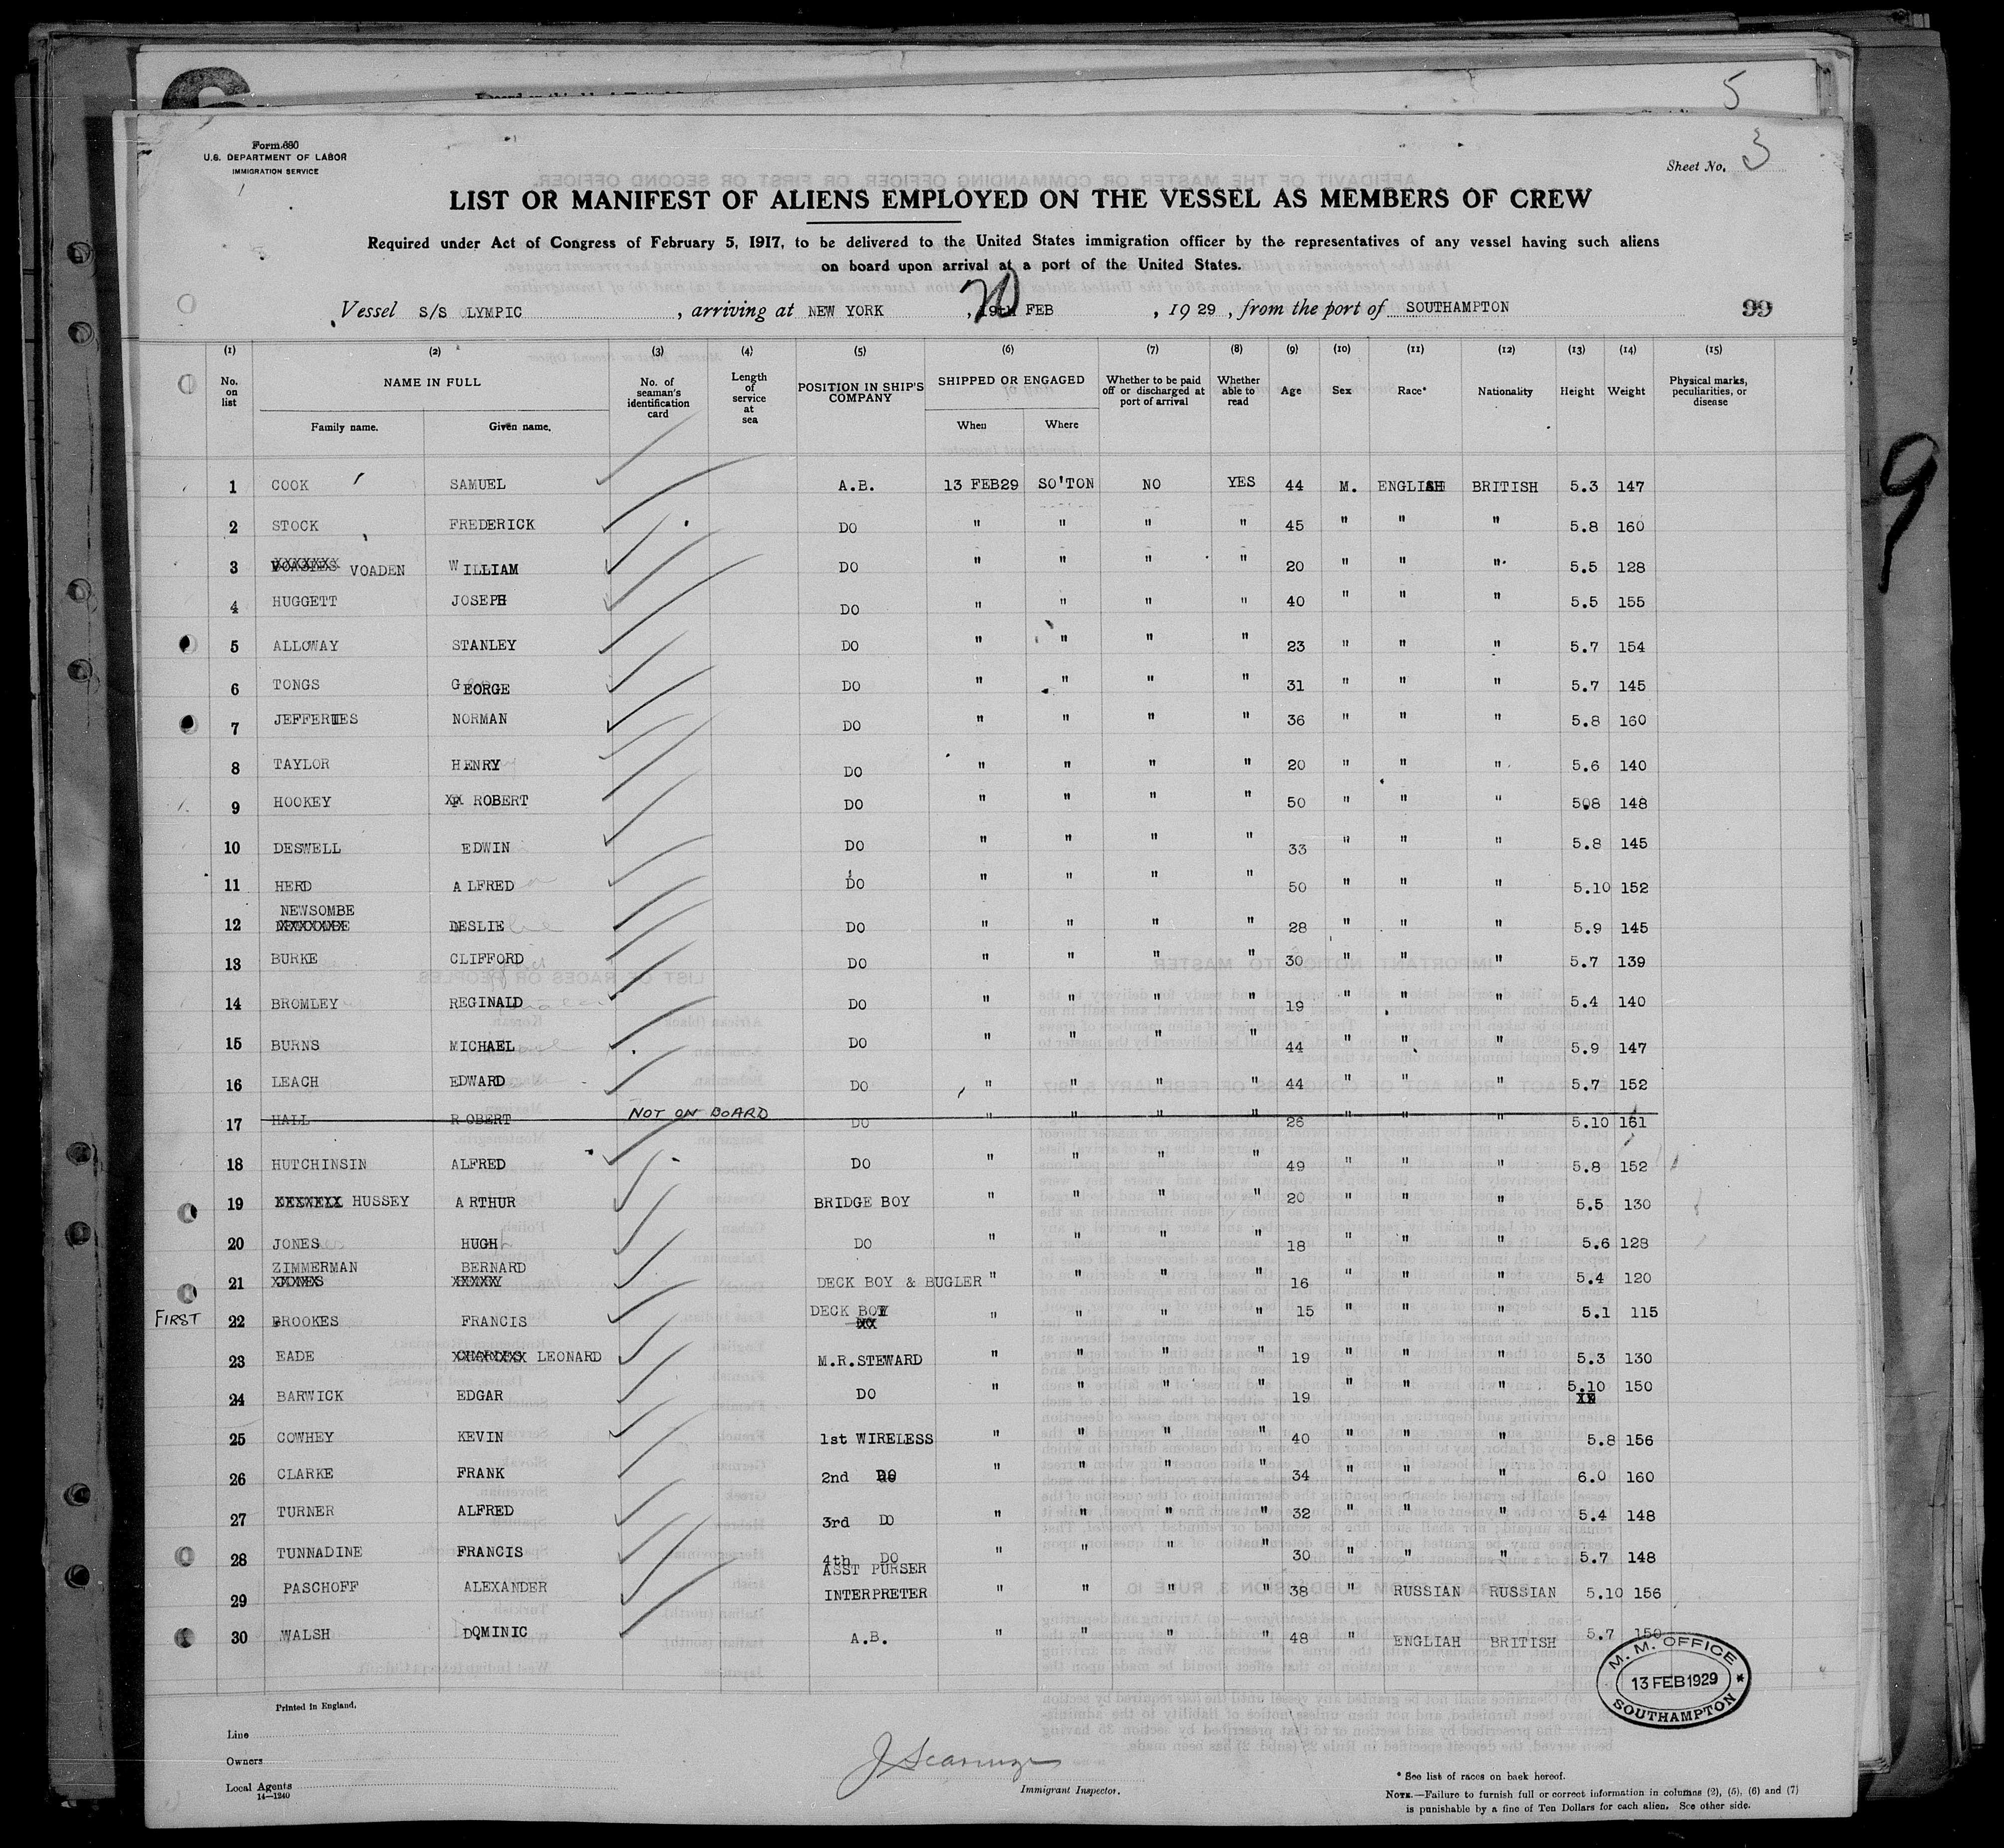 5
Form 680
U.S. DEPARTMENT OF LABOR
IMMIGRATION SERVICE
Sheet No. 3
LIST OR MANIFEST OF ALIENS EMPLOYED ON THE VESSEL AS MEMBERS OF CREW
Required under Act of Congress of February 5, 1917, to be delivered to the United States immigration officer by the representatives of any vessel having such aliens
on board upon arrival at a port of the United States.
Vessel S/S OLYMPIC, arriving at NEW YORK, 19th 20 FEB, 1929, from the port of SOUTHAMPTON 99
(1) (2) (3) (4) (5) (6) (7) (8) (9) (10) (11) (12) (13) (14) (15)
No. on list NAME IN FULL Family name. Given name. No. of seaman's identification card Length of service at sea POSITION IN SHIP'S COMPANY SHIPPED OR ENGAGED When Where Whether to be paid off or discharged at port of arrival Whether able to read Age Sex Race* Nationality Height Weight Physical marks, peculiarities, or disease
1 COOK SAMUEL A.B. 13 FEB29 SO'TON NO YES 44 M. ENGLISH BRITISH 5.3 147
2 STOCK FREDERICK DO " " " " 45 " " " 5.8 160
3 VOADEN WILLIAM DO " " " " 20 " " " 5.5 128
4 HUGGETT JOSEPH DO " " " " 40 " " " 5.5 155
5 ALLOWAY STANLEY DO " " " " 23 " " " 5.7 154
6 TONGS GEORGE DO " " " " 31 " " " 5.7 145
7 JEFFERIES NORMAN DO " " " " 36 " " " 5.8 160
8 TAYLOR HENRY DO " " " " 20 " " " 5.6 140
9 HOOKEY XX ROBERT DO " " " " 50 " " " 508 148
10 DESWELL EDWIN DO " " " " 33 " " " 5.8 145
11 HERD ALFRED DO " " " " 50 " " " 5.10 152
12 NEWSOMBE XXXXXXX DESLIE DO " " " " 28 " " " 5.9 145
13 BURKE CLIFFORD DO " " " " 30 " " " 5.7 139
14 BROMLEY REGINALD DO " " " " 19 " " " 5.4 140
15 BURNS MICHAEL DO " " " " 44 " " " 5.9 147
16 LEACH EDWARD DO " " " " 44 " " " 5.7 152
17 HALL ROBERT NOT ON BOARD DO " " " " 26 " " " 5.10 161
18 HUTCHINSIN ALFRED DO " " " " 49 " " " 5.8 152
19 HUSSEY ARTHUR BRIDGE BOY " " " " 20 " " " 5.5 130
20 JONES HUGH DO " " " " 18 " " " 5.6 128
21 ZIMMERMAN BERNARD DECK BOY & BUGLER " " " " 16 " " " 5.4 120
FIRST 22 BROOKES FRANCIS DECK BOY " " " " 15 " " " 5.1 115
23 EADE LEONARD M.R.STEWARD " " " " 19 " " " 5.3 130
24 BARWICK EDGAR DO " " " " 19 " " " 5.10 150
25 COWHEY KEVIN 1st WIRELESS " " " " 40 " " " 5.8 156
26 CLARKE FRANK 2nd DO " " " " 34 " " " 6.0 160
27 TURNER ALFRED 3rd DO " " " " 32 " " " 5.4 148
28 TUNNADINE FRANCIS 4th DO " " " " 30 " " " 5.7 148
29 PASCHOFF ALEXANDER ASST PURSER INTERPRETER " " " " 38 " RUSSIAN RUSSIAN 5.10 156
30 WALSH DOMINIC A.B. " " " " 48 " ENGLIAH BRITISH 5.7 150
M. M. OFFICE
13 FEB 1929
SOUTHAMPTON
Printed in England.
Line
Owners
Local Agents
14—1240
Immigrant Inspector.
* See list of races on back hereof.
NOTE.—Failure to furnish full or correct information in columns (2), (5), (6) and (7)
is punishable by a fine of Ten Dollars for each alien. See other side.
9